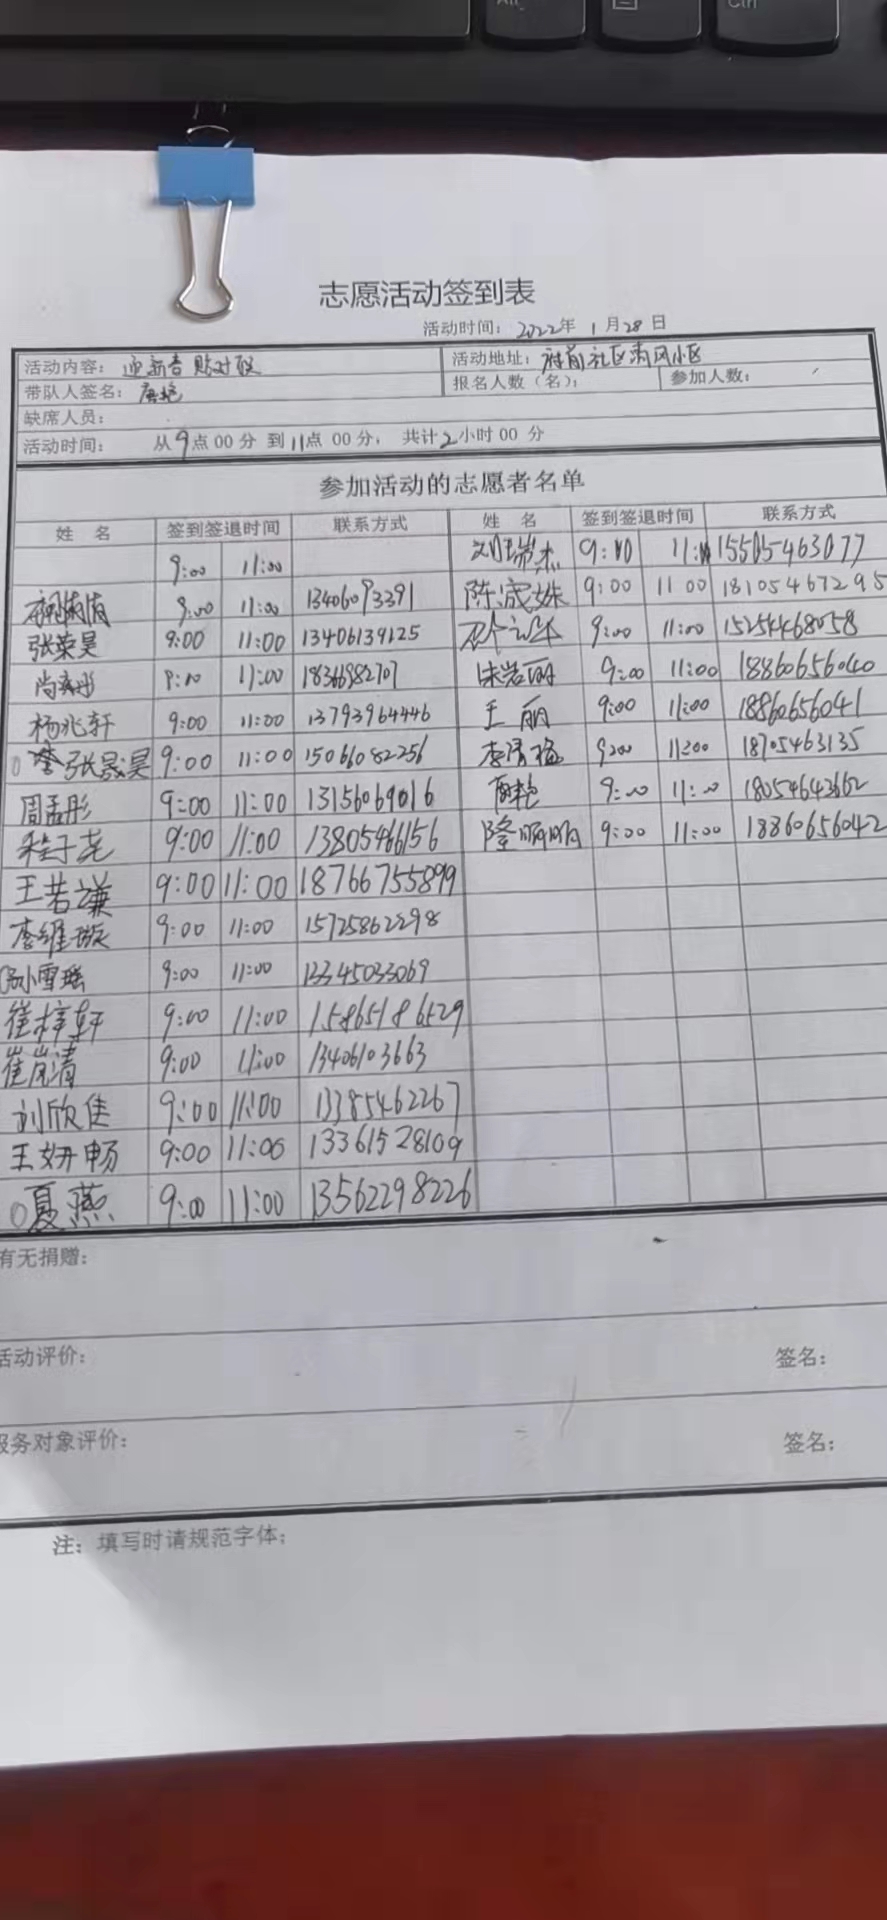 Alt
Ctrl
志愿活动签到表
活动时间: 2022年 1月28日
活动内容: 迎新春 贴对联 活动地址: 府前社区清风小区
带队人签名: 唐艳 报名人数（名）: 参加人数:
缺席人员:
活动时间: 从9点00分 到11点00分, 共计2小时00分
参加活动的志愿者名单
姓 名 签到签退时间 联系方式 姓 名 签到签退时间 联系方式
9:00 11:00 刘瑞杰 9:00 11:00 15505463077
9:00 11:00 13406093391 陈宬姝 9:00 11 00 18105467295
张荣昊 9:00 11:00 13406139125 9:00 11:00 15254468058
尚嘉彤 9:00 11:00 18366982707 朱岩丽 9:00 11:00 18860656040
杨兆轩 9:00 11:00 13793964446 王丽 9:00 11:00 18860656041
张晟昊 9:00 11:00 15066082256 9:00 11:00 18705463135
周孟彤 9:00 11:00 13156069016 唐艳 9:00 11:00 18054643662
程子尧 9:00 11:00 13805466156 隆明明 9:00 11:00 18860656042
王若谦 9:00 11:00 18766755899
李维璇 9:00 11:00 15725862298
孙雪瑶 9:00 11:00 13345033069
崔梓轩 9:00 11:00 15865186529
崔岚清 9:00 11:00 13406103663
刘欣佳 9:00 11:00 13385462267
王妍畅 9:00 11:00 13361528109
夏燕 9:00 11:00 13562298226
有无捐赠:
活动评价: 签名:
服务对象评价: 签名:
注: 填写时请规范字体;